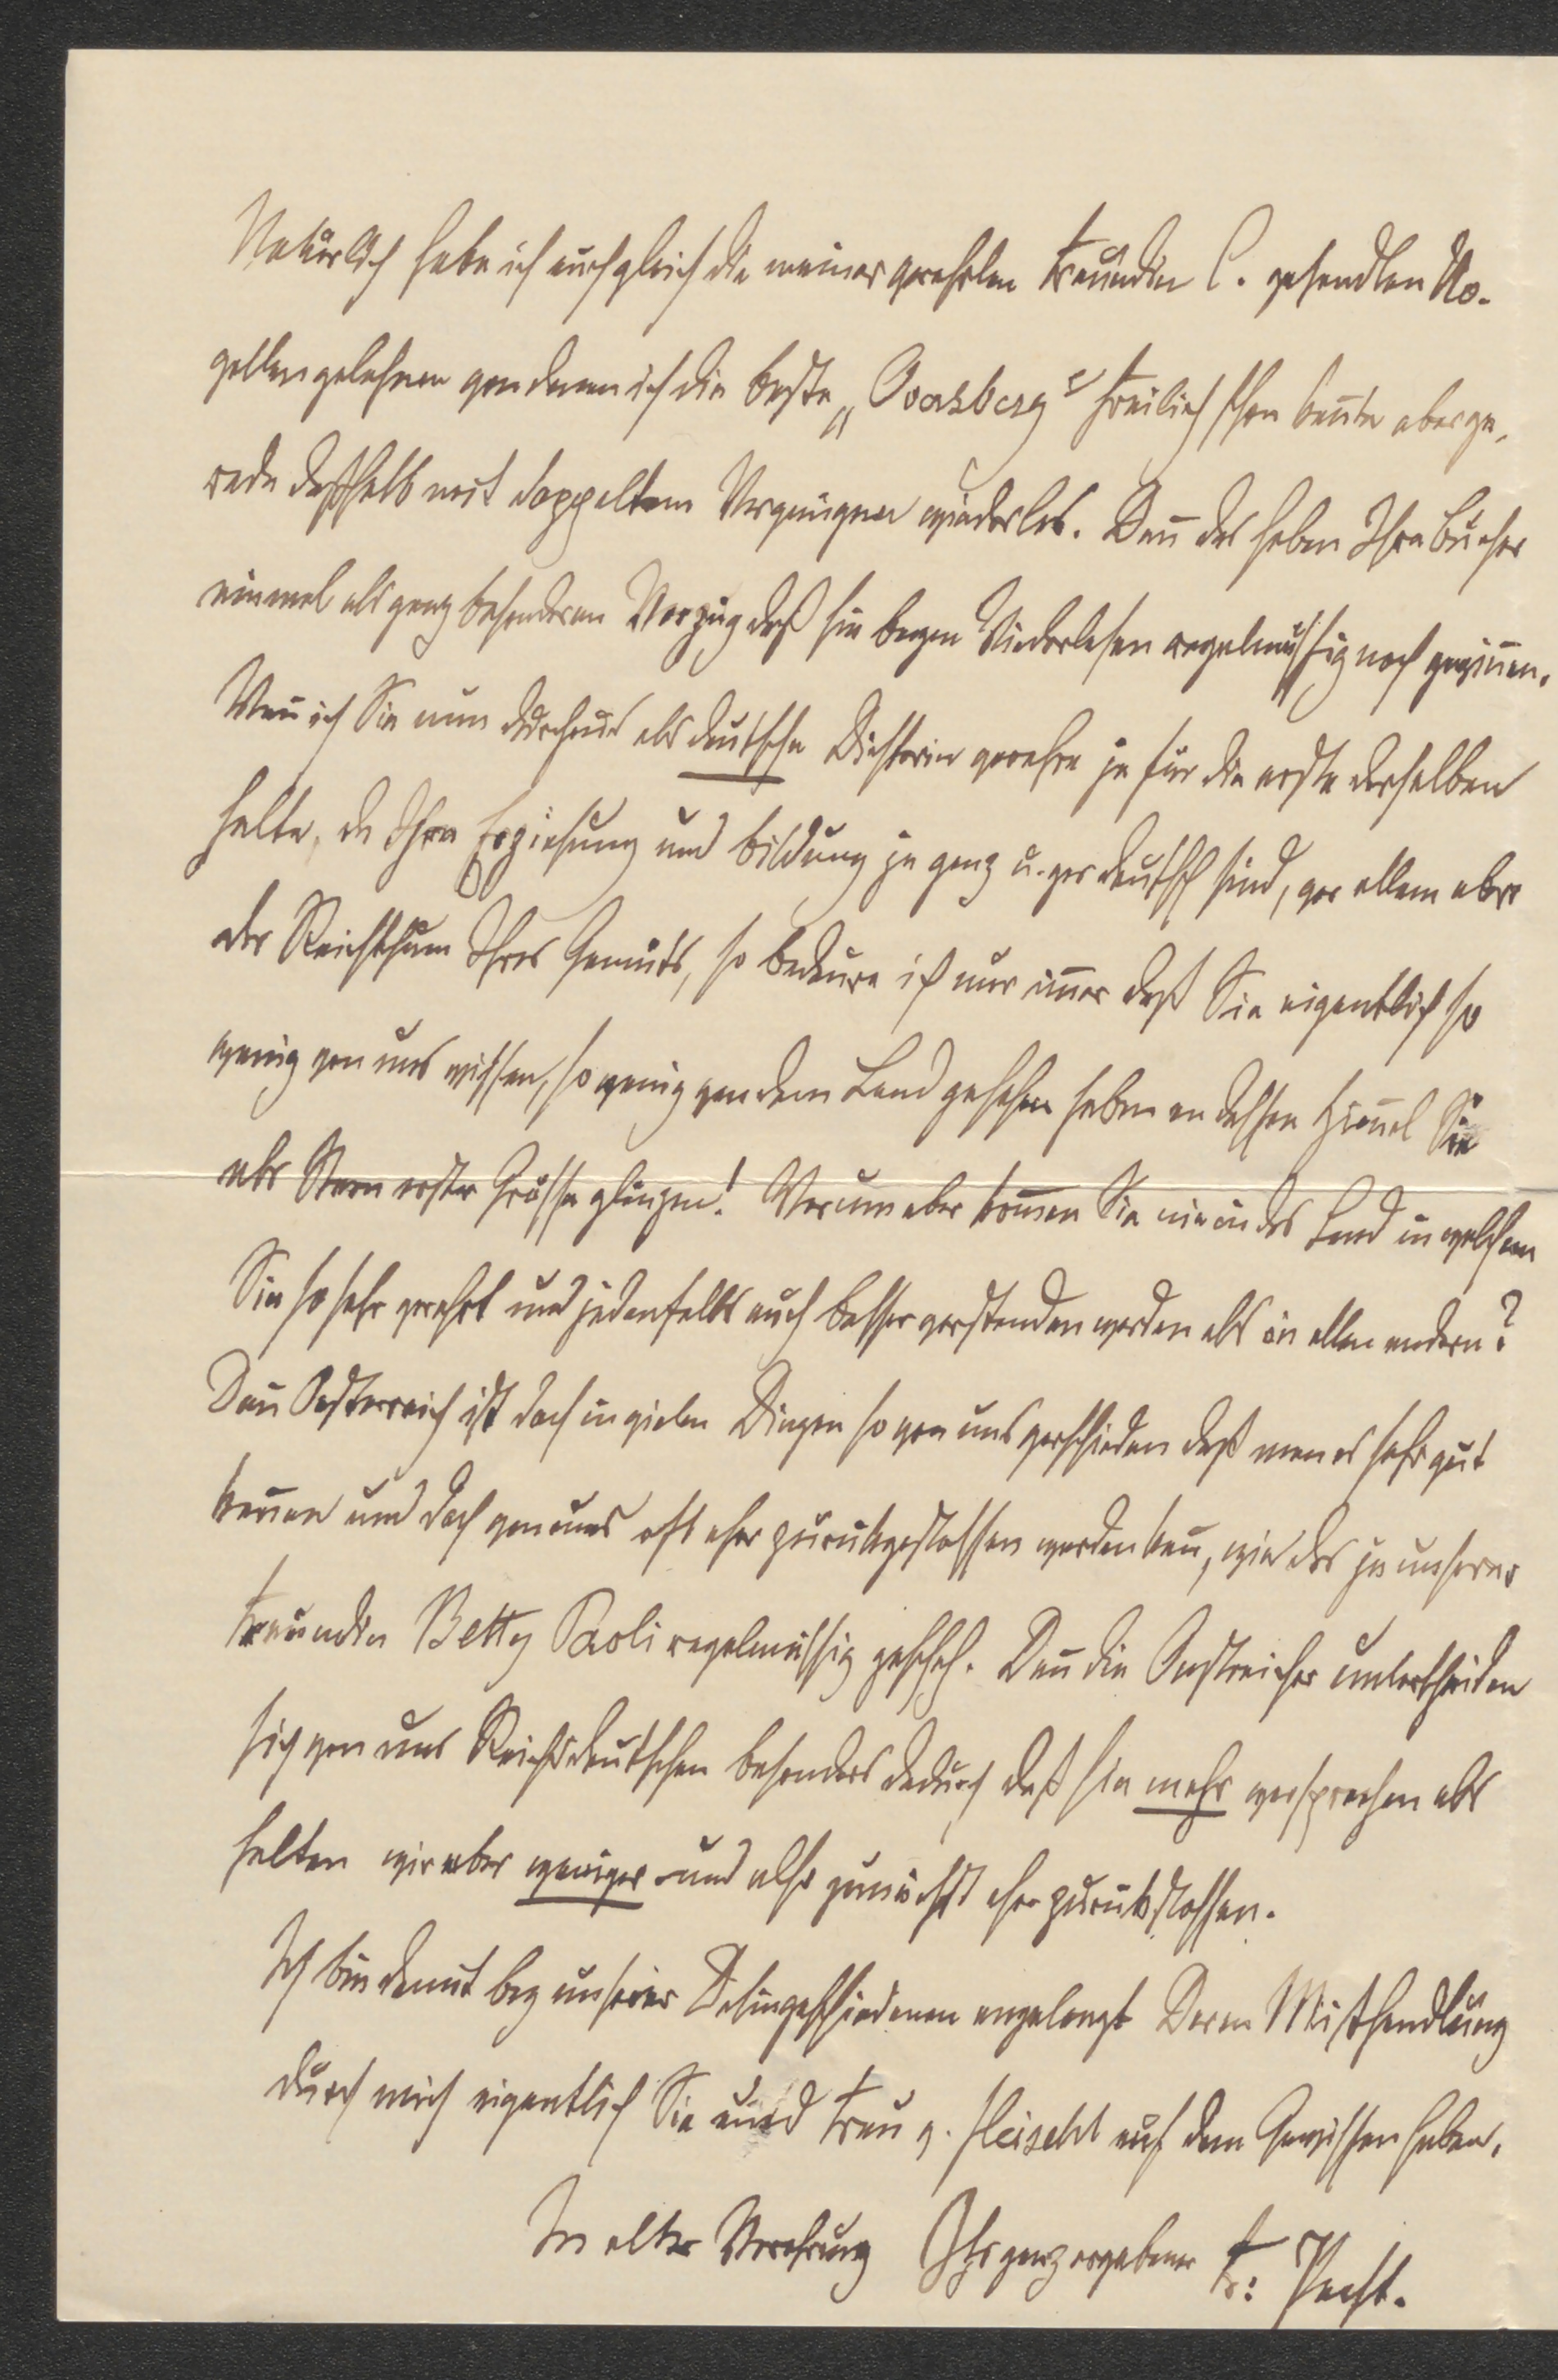 Natürlich habe ich auch gleich die meiner verehrten Freundin C. gesendten No-
vellen gelesen von denen ich die beste „Oversberg“ freilich schon kannte aber ge-
rade deßhalb mit doppeltem Vergnügen wiederlas. Deñ das haben Ihre Bücher
einmal als ganz besonderen Vorzug daß sie beym Wiederlesen regelmässig noch gewiñen.
Weñ ich Sie nun durchaus als deutsche Dichterin verehre ja für die erste derselben
halte, da Ihre Erziehung und Bildung ja ganz u. gar deutsch sind, vor allem aber
der Reichthum Ihres Gemüts, so bedaure ich nur im̄er daß Sie eigentlich so
wenig von uns wissen, so wenig von dem Land gesehen haben an dessen Him̄el Sie
als Stern erster Grösse glänzen! Warum aber kom̄en Sie nie in das Land in welchem
Sie so sehr verehrt und jedenfalls auch besser verstanden werden als in allen andern?
Deñ Oesterreich ist doch in vielen Dingen so von uns verschieden daß man es sehr gut
keñen und doch von uns oft eher zurükgestossen werden kañ, wie das ja unserer
Freundin Betty Paoli regelmässig geschah. Deñ die Oestreicher unterscheiden
sich von uns Reichsdeutschen besonders dadurch daß sie mehr versprechen als
halten wir aber weniger und also zunächst eher zurükstossen.
Ich bin damit bey unserer Dahingeschiedenen angelangt Deren Mißhandlung
durch mich eigentlich Sie und Frau v. Fleischl auf dem Gewissen haben.
In alter Verehrung Ihr ganz ergebener Fr: Pecht.